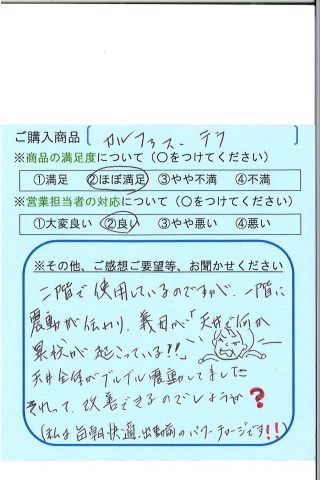 ご購入商品
カルファス・テラ
※商品の満足度について（○をつけてください）
①満足 ②ほぼ満足 ③やや不満 ④不満
※営業担当者の対応について（○をつけてください）
①大変良い ②良い ③やや悪い ④悪い
※その他、ご感想ご要望等、お聞かせください
二階で使用しているのですが、一階に
震動が伝わり、義母が「天井で何か
異状が起こっている!!」
天井全体がブルブル震動してました
それって、改善できるのでしょうか?
(私は毎朝快適、出勤前のパワーチャージです!!)